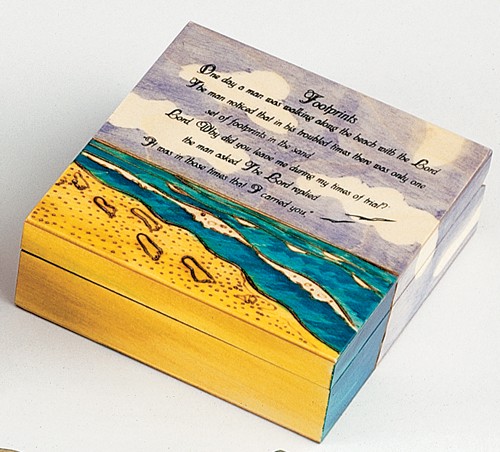 Footprints
One day a man was walking along the beach with the Lord
The man noticed that in his troubled times there was only one
set of footprints in the sand
Lord Why did you leave me during my times of trial?
the man asked The Lord replied
"It was in those times that I carried you."